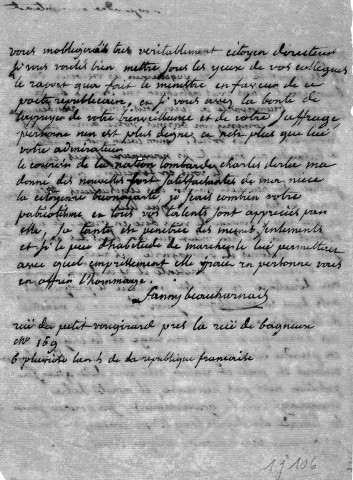 vous mobligerés tres veritablement citoyen directeur
si vous voulés bien mettre sous les yeux de vos collegues
le raport qua fait le ministre en faveur de ce
poete republicain, et si vous avez la bonté de
lapuyer de votre bienveillance et de votre suffrage
personne nen est plus digne ce n'est plus que lui
votre admirateur
le courier de la nation lombarde charles derla ma
donné des nouvelles fort satisfaisantes de ma niece
la citoyenne buonaparte, je sçais combien votre
patriotisme et tous vos talents sont appreciés par
elle, sa tante est penetrée des mems sentiments
et si le peu d'habitude de marcher le lui permettoit
avec quel empressement elle iroit en personne vous
en offrir l'hommage.
Fanny beauharnais
rüe du petit vaugirard pres la rüe de bagneux
no 169
6 pluviose lan 5 de la republique francaise
1j 106